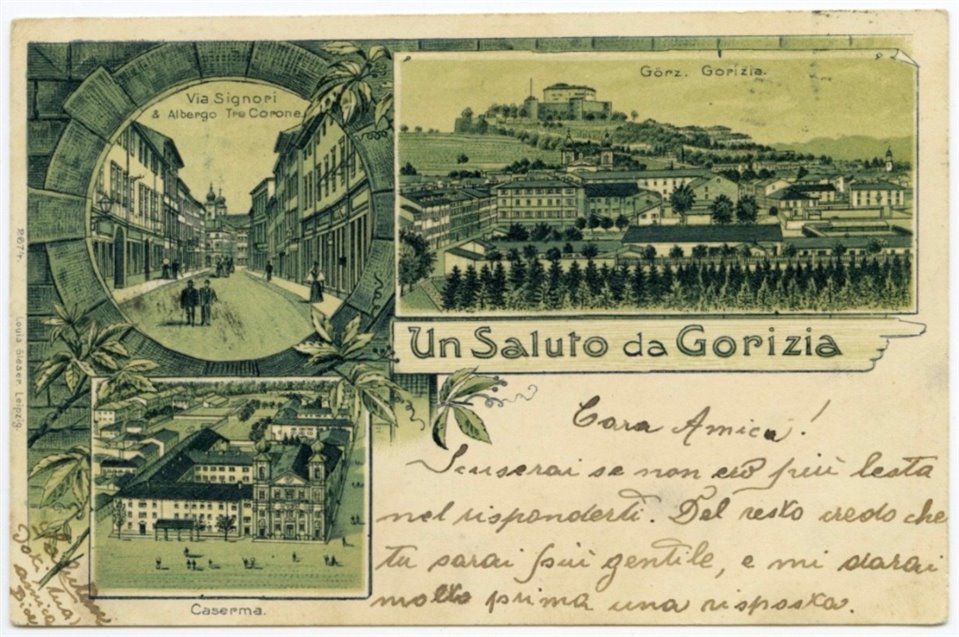 Via Signori
& Albergo Tre Corone.
Görz. Gorizia.
Un Saluto da Gorizia
Caserma.
2674. Louis Glaser, Leipzig.
Cara Amica!
Scuserai se non ero più lesta
nel risponderti. Del resto credo che
tu sarai più gentile, e mi darai
molto prima una risposta.
amica